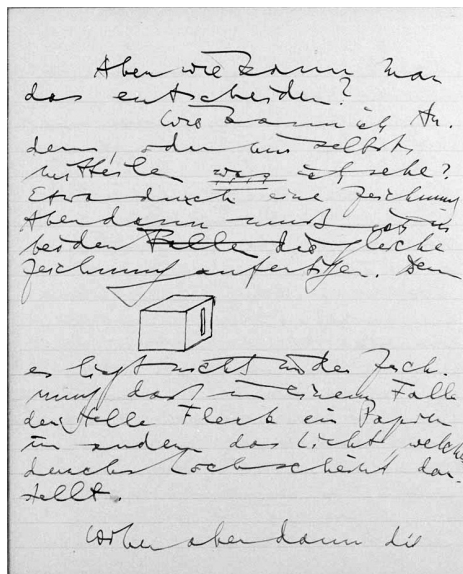 Aber wie kann man
das entscheiden?
Wie kann ich An-
dern oder mir selbst
mitteilen was ich sehe?
Etwa durch eine Zeichnung
Aber dann muß ich in
beiden Fällen die gleiche
Zeichnung anfertigen. Denn
es liegt nicht in der Zeich-
nung daß in einem Falle
der helle Fleck ein Papier
im andern das Licht welches
durchs Loch scheint dar-
stellt.
Woher aber dann die